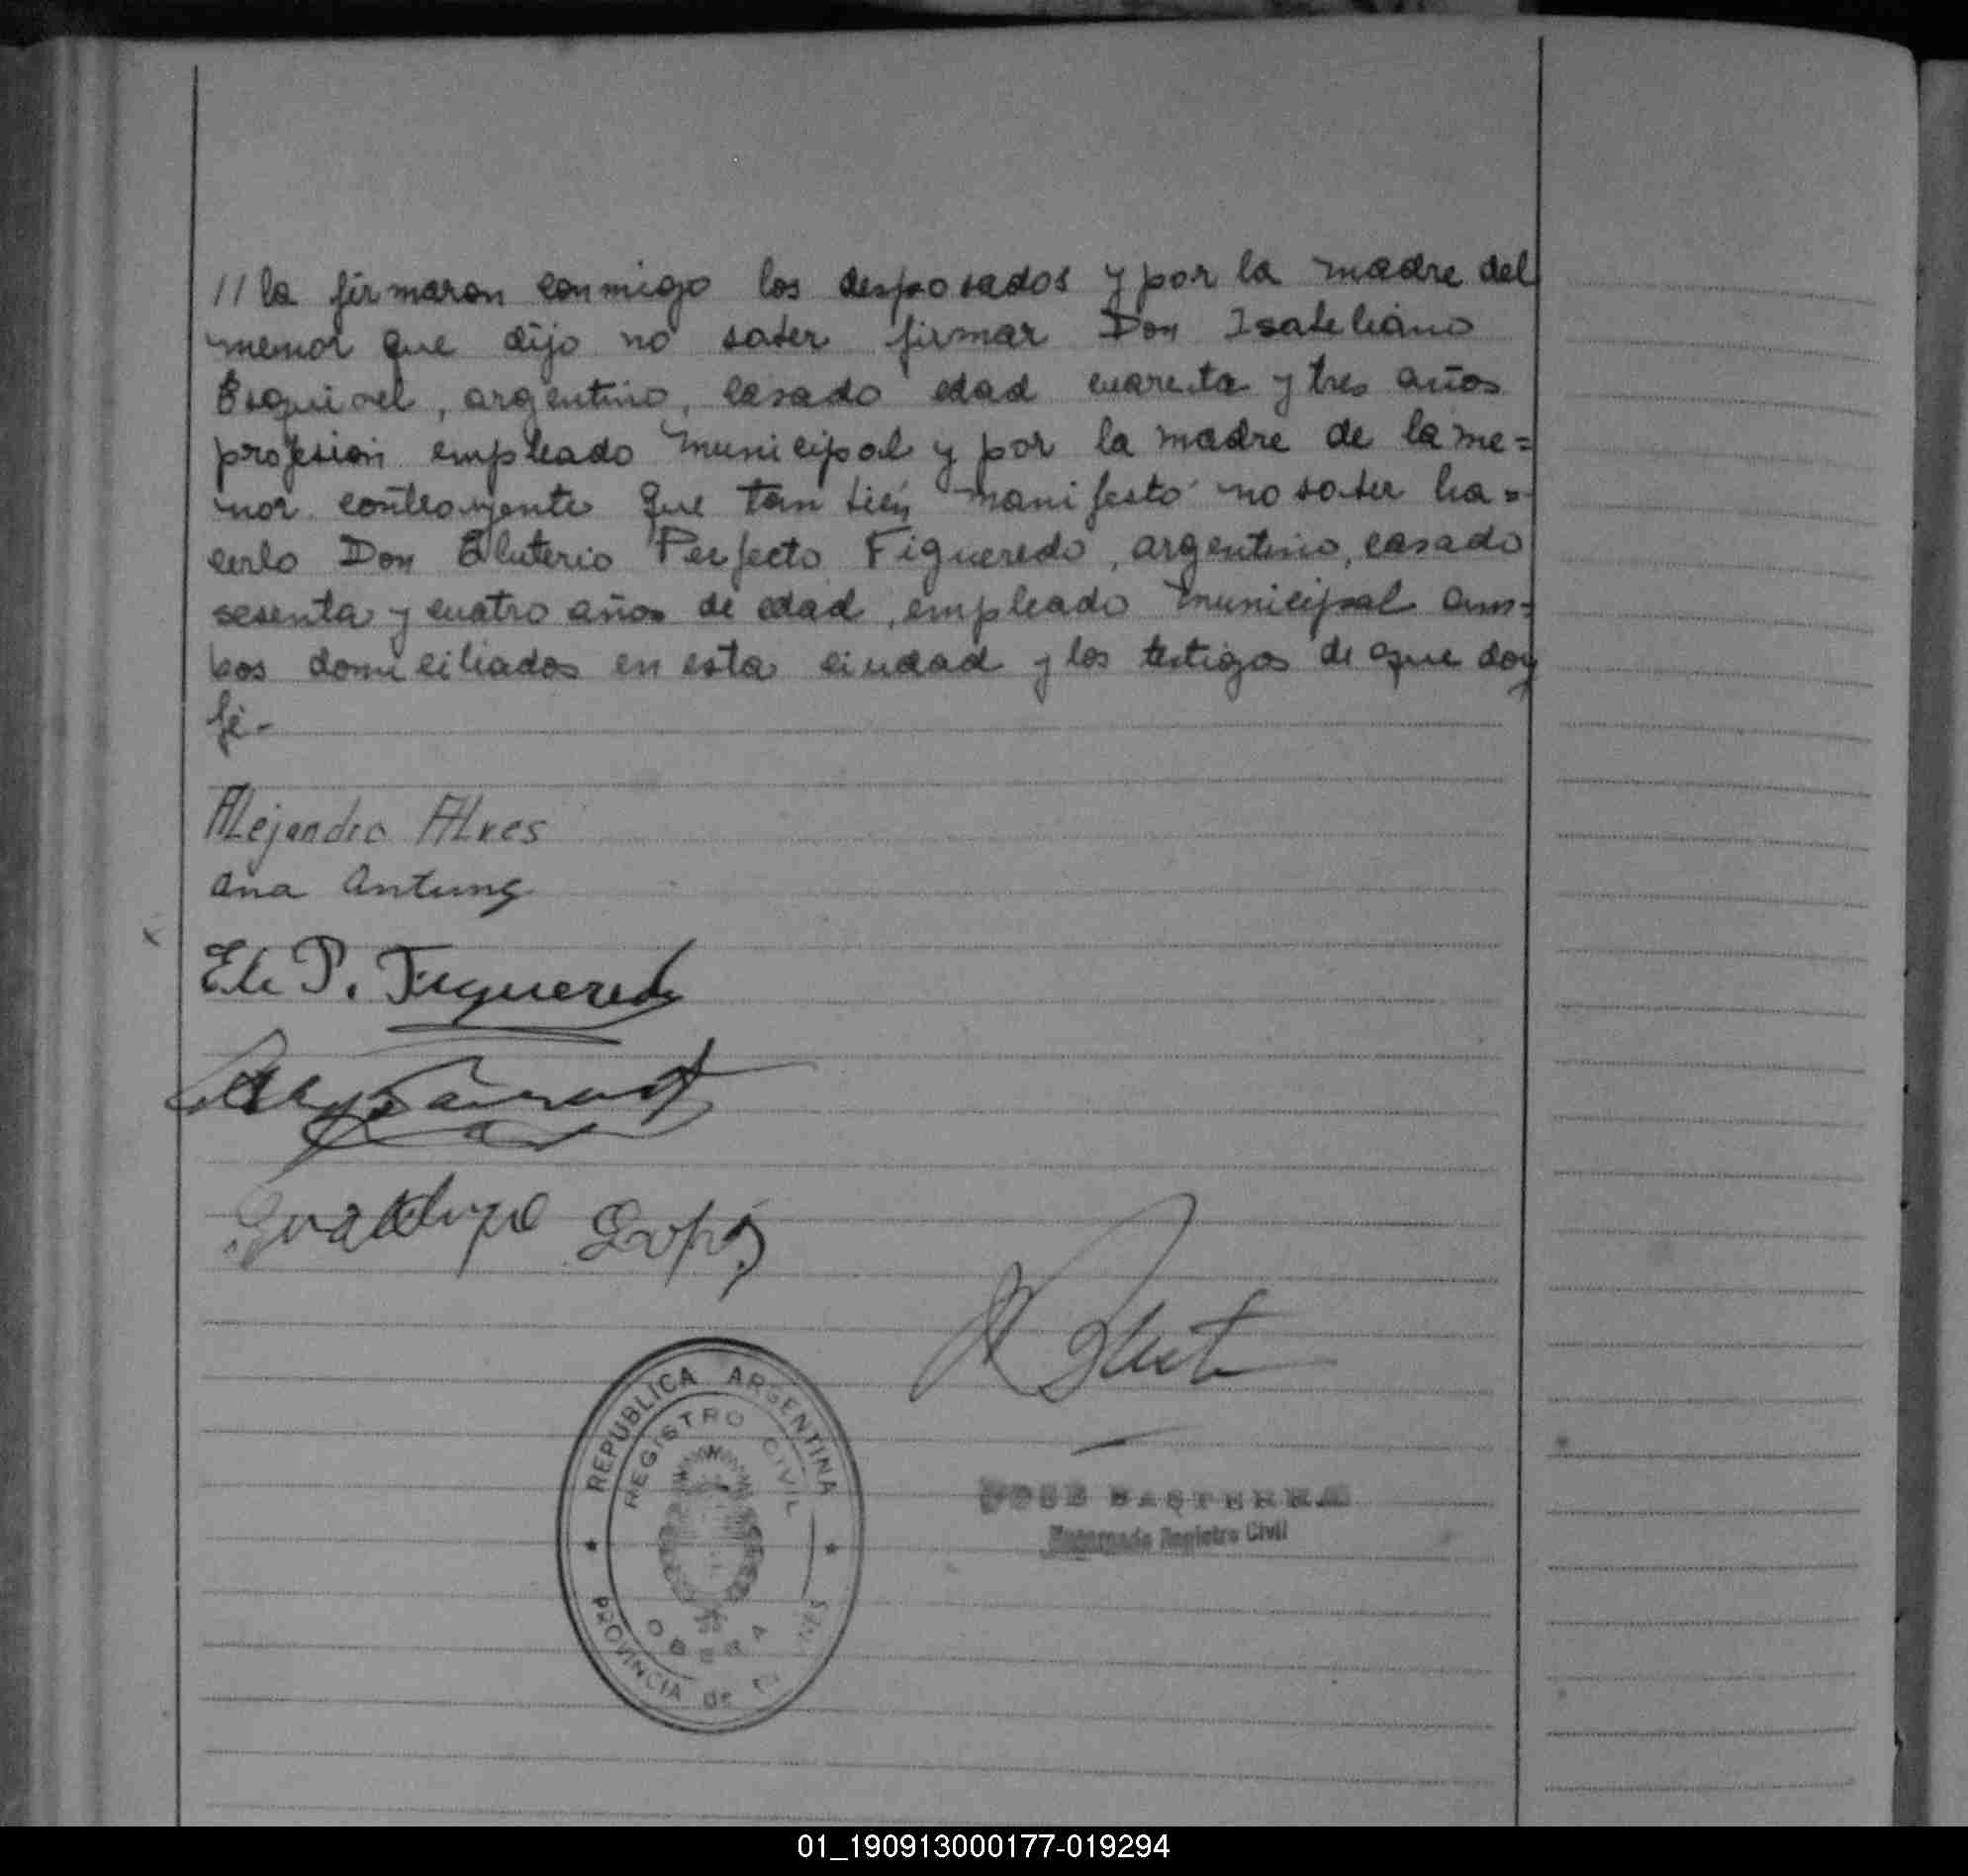 //la firmaron conmigo los desposados y por la madre del
menor que dijo no saber firmar Don Isabeliano
Esquivel, argentino, casado edad cuarenta y tres años
profesión empleado municipal y por la madre de la me=
nor contrayente que tambien manifestó no saber ha=
cerlo Don Eluterio Perfecto Figueredo, argentino, casado
sesenta y cuatro años de edad, empleado municipal am=
bos domiciliados en esta ciudad y los testigos de que doy
fé-
Alejandro Alves
Ana Antunez
Ele P. Figueredo
Guadalupe Lopez
REPUBLICA ARGENTINA
REGISTRO CIVIL
OBERA
PROVINCIA de
JOSE BASTERRA
Encargado Registro Civil
01_190913000177-019294